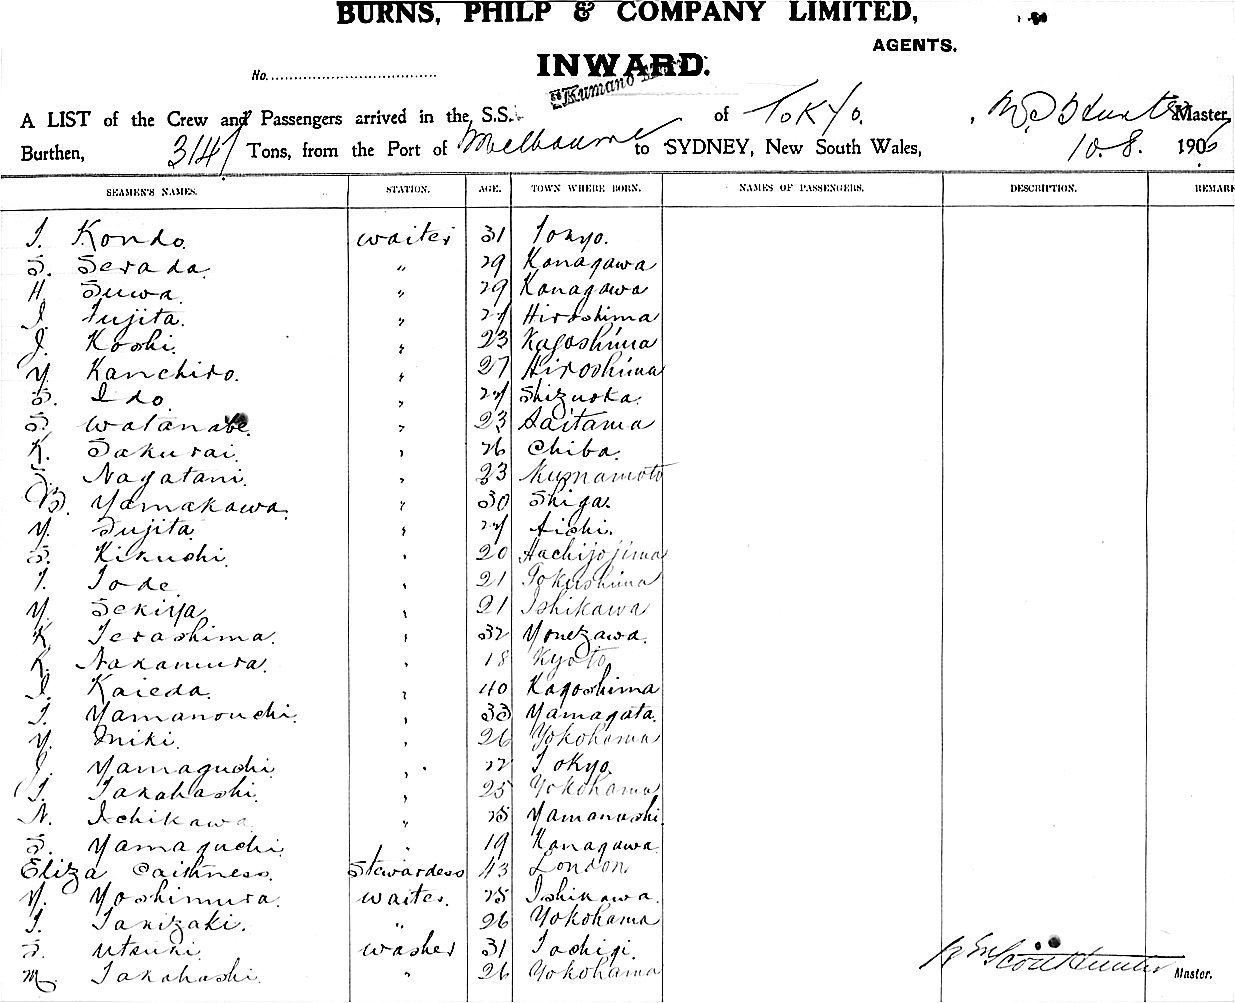 BURNS, PHILP & COMPANY LIMITED,
AGENTS.
INWARD.
No.
Kumano
A LIST of the Crew and Passengers arrived in the S.S. of Tokyo. Master,
Burthen, 3147 Tons, from the Port of Melbourne to SYDNEY, New South Wales, 10.8. 1906
SEAMEN'S NAMES. STATION. AGE. TOWN WHERE BORN. NAMES OF PASSENGERS. DESCRIPTION. REMARK
T. Kondo. waiter 31 Tokyo.
S. Serada. " 29 Kanagawa
H. Suwa. " 29 Kanagawa
I. Fujita. " 27 Hiroshima
J. Koshi. " 23 Kagoshima
Y. Kanchiro. " 27 Hiroshima
S. Ido. " 27 Shizuoka.
S. Watanabe. " 23 Saitama
K. Sakurai. " 26 Chiba.
Nagatani. " 23 Kumamoto
B. Yamakawa. " 30 Shiga.
Y. Fujita. " 27 Aichi.
S. Kikuchi. " 20 Hachijojima
T. Tode. " 21 Tokushima
Y. Sekiya. " 21 Ishikawa
K. Terashima. " 32 Yonezawa.
K. Nakamura. " 18 Kyoto.
I. Kaieda. " 40 Kagoshima
T. Yamanouchi. " 33 Yamagata.
Y. Miki. " 26 Yokohama
J. Yamaguchi. " 22 Tokyo.
T. Takahashi. " 25 Yokohama
N. Ichikawa. " 25 Yamanashi.
S. Yamaguchi. " 19 Kanagawa.
Eliza Caithness. Stewardess 43 London.
Y. Yoshimura. waiter. 25 Ishikawa.
T. Takizaki. " 26 Yokohama
S. Utsuki. washer 31 Tochigi.
M. Takahashi. " 26 Yokohama
Master.